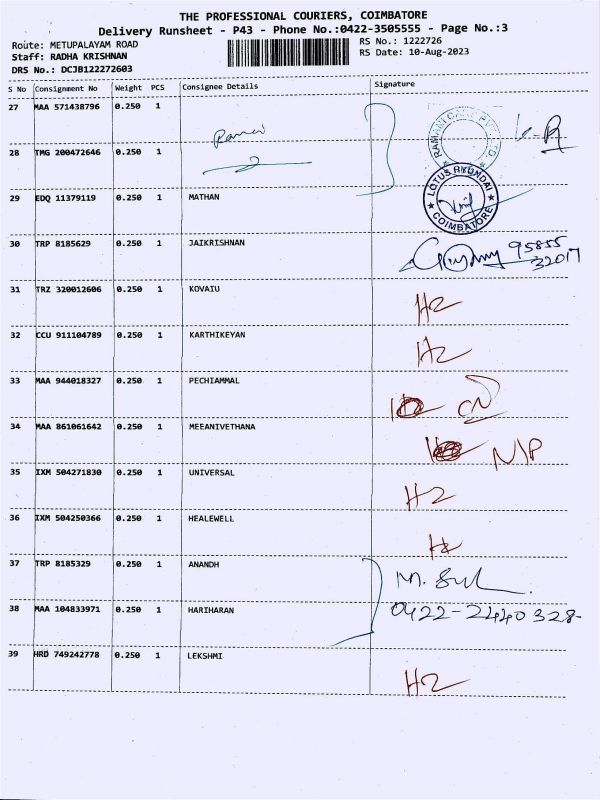 THE PROFESSIONAL COURIERS, COIMBATORE
Delivery Runsheet - P43 - Phone No.:0422-3505555 - Page No.:3
Route: METUPALAYAM ROAD
RS No.: 1222726
Staff: RADHA KRISHNAN
RS Date: 10-Aug-2023
DRS No.: DCJB122272603
S No Consignment No Weight PCS Consignee Details Signature
27 MAA 571438796 0.250 1
28 TMG 200472646 0.250 1
RAMANI CARS PVT LTD
29 EDQ 11379119 0.250 1 MATHAN
LOTUS HYUNDAI
★ COIMBATORE ★
30 TRP 8185629 0.250 1 JAIKRISHNAN
95855
32017
31 TRZ 320012606 0.250 1 KOVAIU
H2
32 CCU 911104789 0.250 1 KARTHIKEYAN
H2
33 MAA 944018327 0.250 1 PECHIAMMAL
34 MAA 861061642 0.250 1 MEEANIVETHANA
N/P
35 IXM 504271830 0.250 1 UNIVERSAL
H2
36 IXM 504250366 0.250 1 HEALEWELL
37 TRP 8185329 0.250 1 ANANDH
38 MAA 104833971 0.250 1 HARIHARAN
0422-2440328-
39 HRD 749242778 0.250 1 LEKSHMI
H2